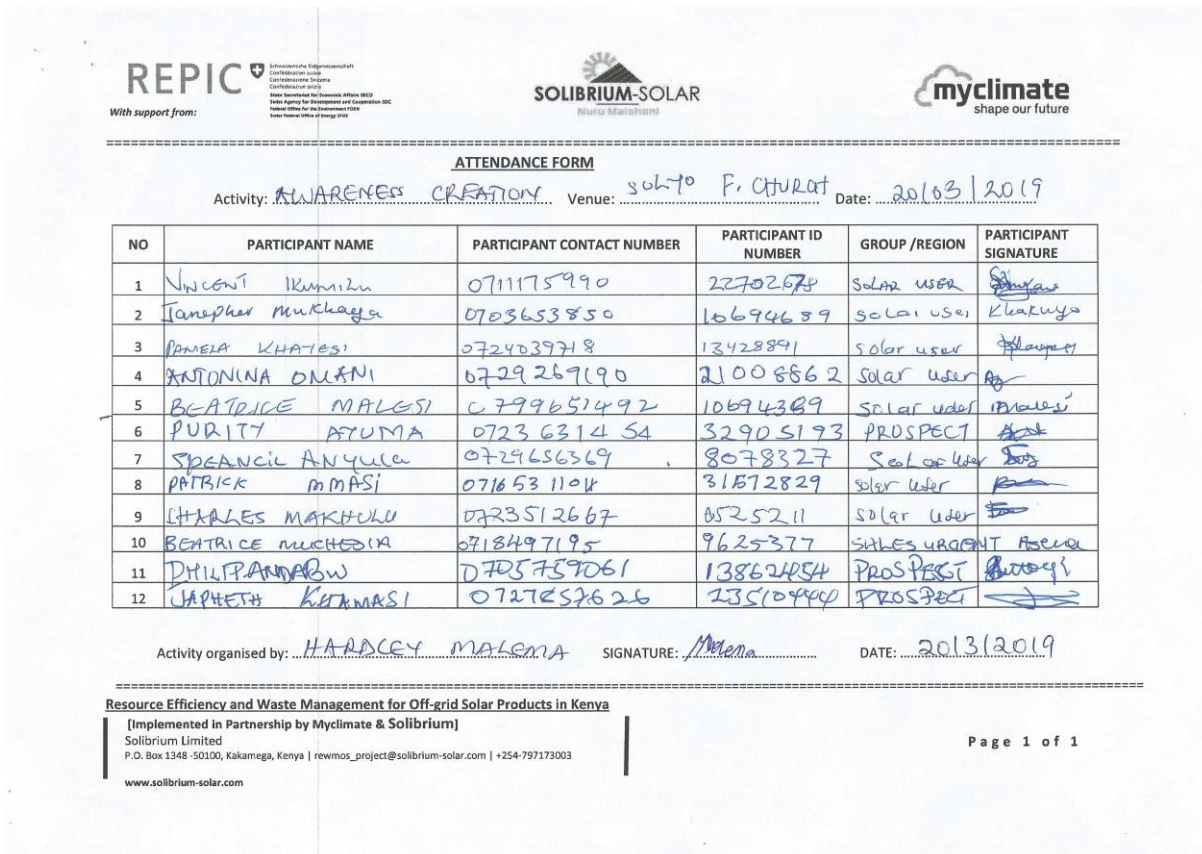 REPIC
Schweizerische Eidgenossenschaft
Confédération suisse
Confederazione Svizzera
Confederaziun svizra
State Secretariat for Economic Affairs SECO
Swiss Agency for Development and Cooperation SDC
Federal Office for the Environment FOEN
Swiss Federal Office of Energy SFOE
With support from:
SOLIBRIUM-SOLAR
Nuru Maishani
myclimate
shape our future
ATTENDANCE FORM
Activity: AWARENESS CREATION Venue: F. CHURCH Date: 20/03/2019
NO PARTICIPANT NAME PARTICIPANT CONTACT NUMBER PARTICIPANT ID NUMBER GROUP /REGION PARTICIPANT SIGNATURE
1 VINCENT 0711175990 22702678 SOLAR USER
2 Janepher Mukhaya 0703653850 10694689 solar user Khakuya
3 PAMELA KHATESI 0724039718 13428891 solar user
4 ANTONINA OMANI 0729269190 21008862 solar user
5 BEATRICE MALESI 0799651492 10694389 Solar user Malesi
6 PURITY AYUMA 0723631454 32905193 PROSPECT
7 SPEANCIL ANYULA 0729656369 8078327 Solar User
8 PATRICK MMASI 31572829 solar user
9 CHARLES MAKHULU 0723512667 solar user
10 BEATRICE 0718497195 9625377 SALES URGENT
11 PHILIP ANDABW 0705759061 PROSPEST
12 JAPHETH KHAMASI 0727657626 23510444 PROSPECT
Activity organised by: HARDLEY MALEMA SIGNATURE: Malema DATE: 20/3/2019
Resource Efficiency and Waste Management for Off-grid Solar Products in Kenya
[Implemented in Partnership by Myclimate & Solibrium]
Solibrium Limited
P.O. Box 1348 -50100, Kakamega, Kenya | rewmos_project@solibrium-solar.com | +254-797173003
www.solibrium-solar.com
Page 1 of 1